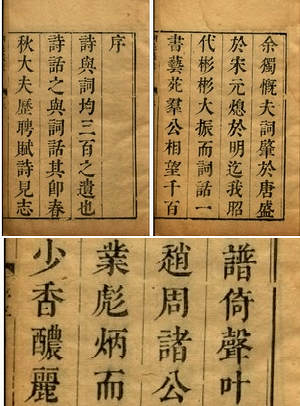 序
詩與詞均三百之遺也
詩話之與詞話其卽春
秋大夫歷聘賦詩見志
余獨慨夫詞肇於唐盛
於宋元熄於明迄我昭
代彬彬大振而詞話一
書藝苑羣公相望千百
譜倚聲叶
趙周諸公
業彪炳而
少香醲麗